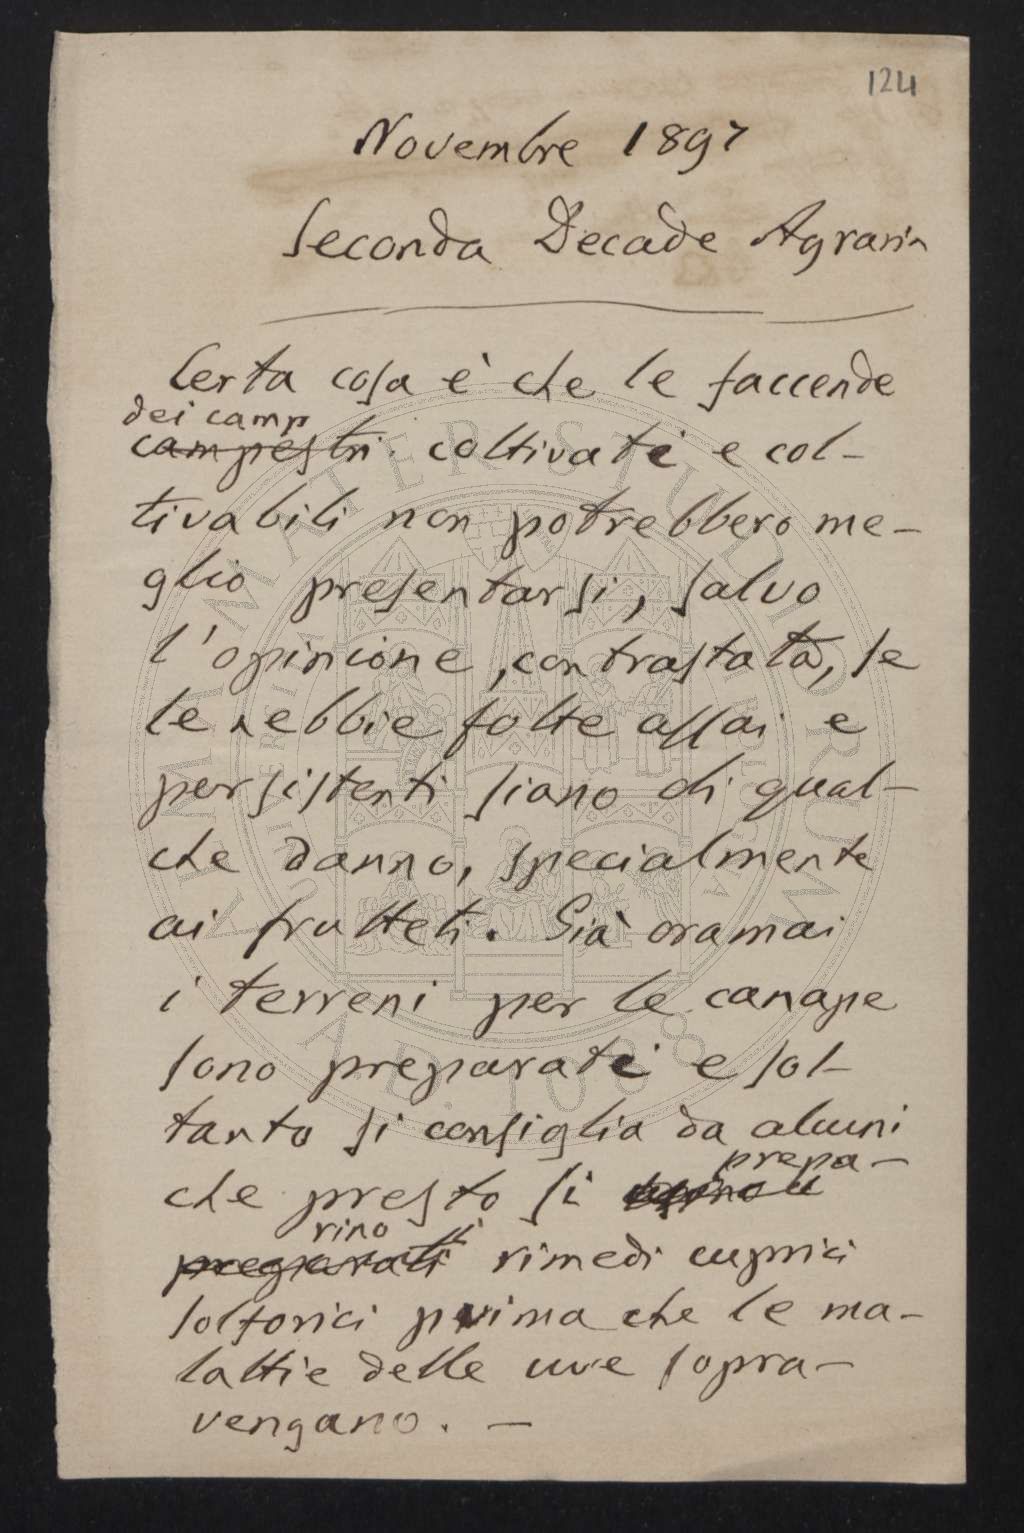 124
Novembre 1897
Seconda Decade Agraria
Certa cosa è che le faccende
dei camp
campestri coltivati e col-
tivabili non potrebbero me-
glio presentarsi, salvo
l'opinione, contrastata, se
le nebbie folte assai e
persistenti siano di qual-
che danno, specialmente
ai frutteti. Già oramai
i terreni per le canape
sono preparati e sol-
tanto si consiglia da alcuni
prepa-
che presto si
rino i
preparati rimedi cuprici
solforici prima che le ma-
lattie delle uve sopra-
vengano. -
ALMA MATER STUDIORUM
A.D. 1088